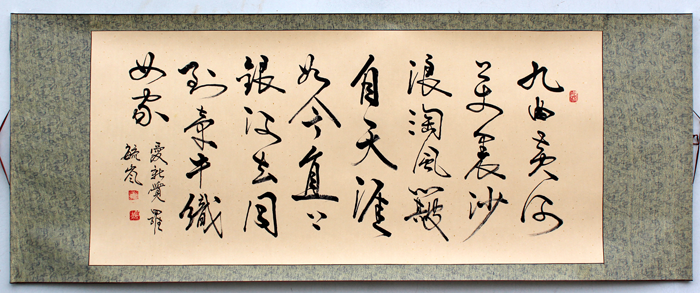 九曲黄河
萬裏沙
浪淘風簸
自天涯
如今直上
銀河去同
到牽牛織
女家
愛新覺羅
毓